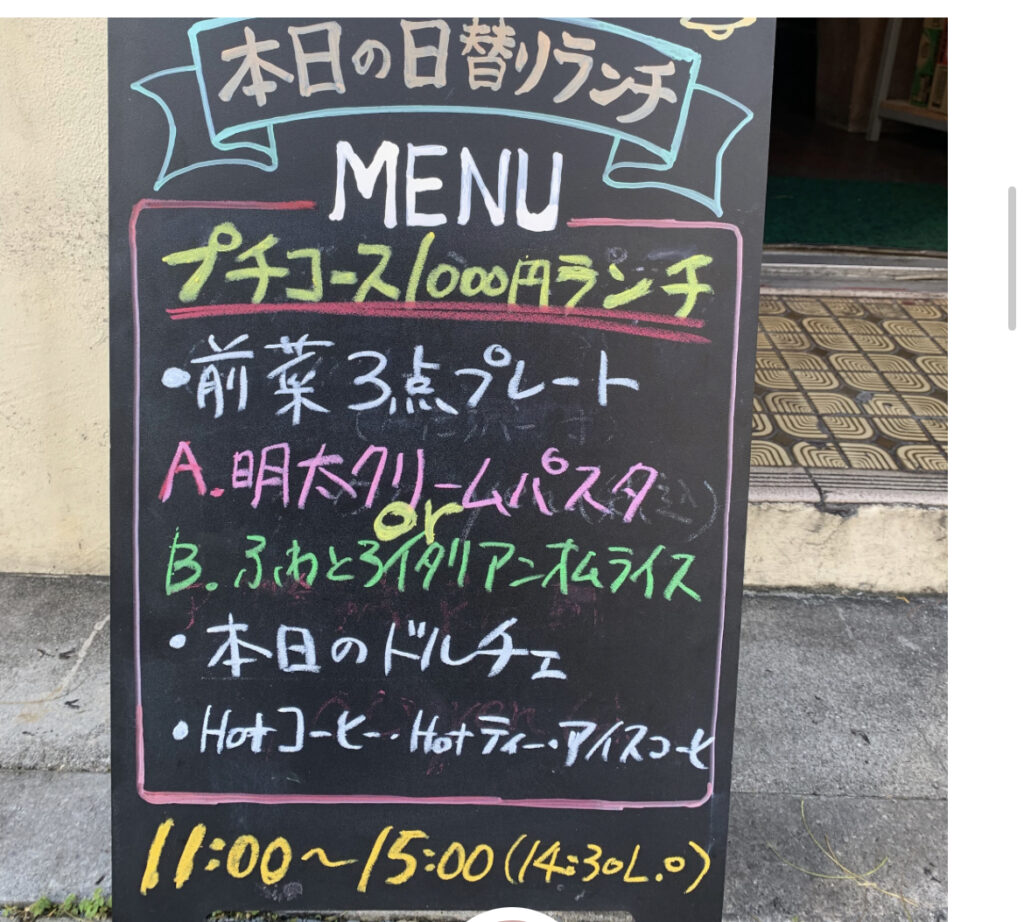 本日の日替りランチ
MENU
プチコース1000円ランチ
・前菜3点プレート
A.明太クリームパスタ
or
B.ふわとろイタリアンオムライス
・本日のドルチェ
・Hotコーヒー・Hotティー・アイスコーヒ
11:00～15:00(14:30L.O)